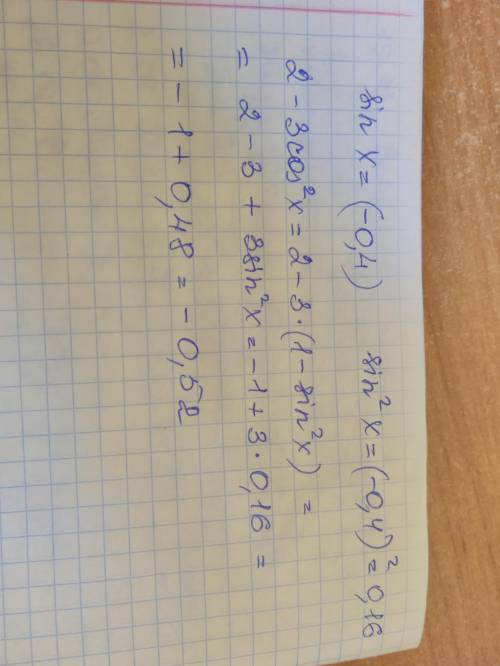 sin x = (-0,4) sin²x = (-0,4)² = 0,16
2 - 3cos²x = 2 - 3·(1 - sin²x) =
= 2 - 3 + 3sin²x = -1 + 3·0,16 =
= -1 + 0,48 = -0,52